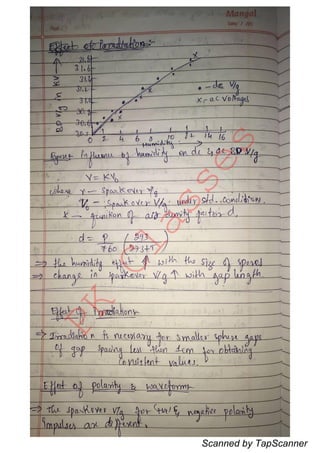 Mangal
Effect of Irradiation:-
BD V/g in KV →
• - dc V/g
x - ac Voltages
0 2 4 6 8 10 12 14 16
humidity →
influence of humidity on dc & ac BD V/g
V = KV₀
where V - Sparkover V/g
V₀ - Sparkover V/g under std. conditions.
K - function of air density factor d.
d = P/760 (293/273+T)
⇒ the humidity effect ↑ with the size of spheres
⇒ change in sparkover V/g ↑ with gap length.
Effect of Irradiation
⇒ Irradiation is necessary for smaller sphere gaps
of gap spacing less than 1cm for obtaining
consistent values.
Effect of polarity & waveform
⇒ The sparkover V/g for +ve & negative polarity
impulses are different.
KK Classes
Scanned by TapScanner